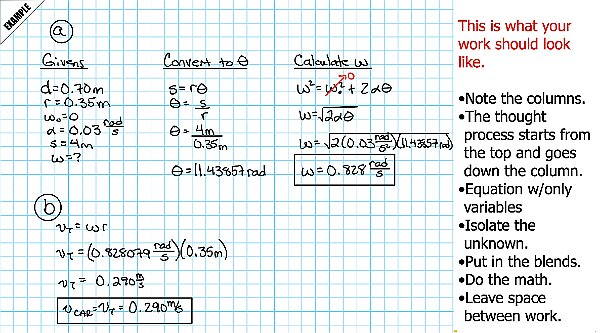 EXAMPLE
a
Givens
d=0.70m
r=0.35m
ω₀=0
α=0.03 rad/s
s=4m
ω=?
Convert to θ
s=rθ
θ=s/r
θ=4m/0.35m
θ=11.43857rad
Calculate ω
ω²=ω₀²+2αθ 0
ω=√2αθ
ω=√2(0.03 rad/s²)(11.43857rad)
ω=0.828 rad/s
b
v_T=ωr
v_T=(0.828079 rad/s)(0.35m)
v_T=0.290 m/s
v_CAR=v_T=0.290 m/s
This is what your
work should look
like.
•Note the columns.
•The thought
process starts from
the top and goes
down the column.
•Equation w/only
variables
•Isolate the
unknown.
•Put in the blends.
•Do the math.
•Leave space
between work.